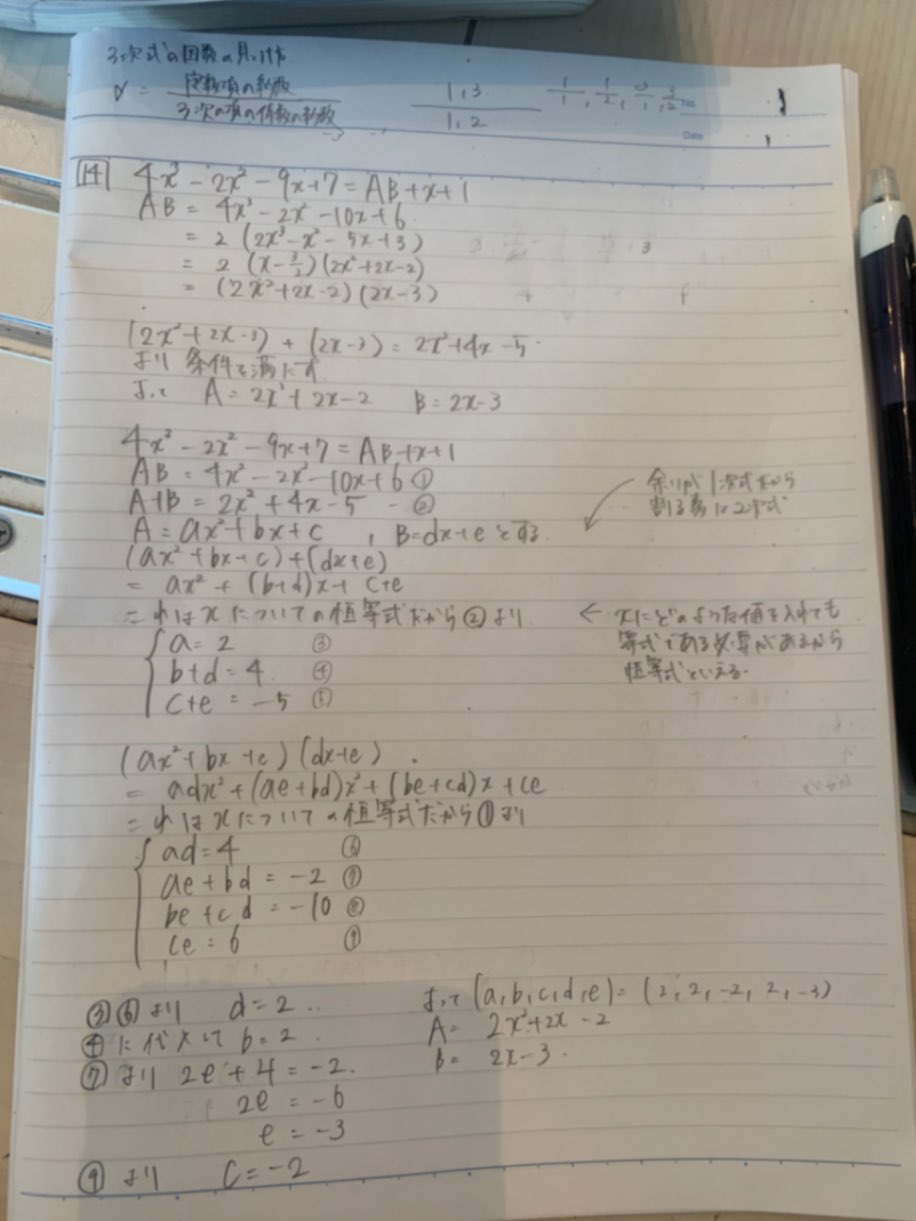 3次式の因数の見つけ方
α = 定数項の約数 / 3次の項の係数の約数
1, 3 / 1, 2
1/1, 1/2, 3/1, 3/2
No.
Date
14 4x³ - 2x² - 9x + 7 = AB + x + 1
AB = 4x³ - 2x² - 10x + 6
= 2 (2x³ - x² - 5x + 3)
= 2 (x - 3/2)(2x² + 2x - 2)
= (2x² + 2x - 2)(2x - 3)
(2x² + 2x - 3) + (2x - 3) = 2x² + 4x - 5
より 条件を満たす
よって A = 2x² + 2x - 2 B = 2x - 3
4x³ - 2x² - 9x + 7 = AB + x + 1
AB = 4x³ - 2x² - 10x + 6 ①
A + B = 2x² + 4x - 5 - ②
A = ax² + bx + c , B = dx + e とする
余りが1次式だから
割る数は2次式
(ax² + bx + c) + (dx + e)
= ax² + (b+d)x + c+e
これはxについての恒等式だから②より
← xにどのような値を入れても
等式である必要があるから
恒等式といえる.
a = 2 ③
b + d = 4 ④
c + e = -5 ⑤
(ax² + bx + c)(dx + e)
= adx³ + (ae + bd)x² + (be + cd)x + ce
これはxについての恒等式だから①より
ad = 4 ⑥
ae + bd = -2 ⑦
be + cd = -10 ⑧
ce = 6 ⑨
③⑥より d = 2
④に代入して b = 2
⑦より 2e + 4 = -2
2e = -6
e = -3
⑨より c = -2
よって (a, b, c, d, e) = (2, 2, -2, 2, -3)
A = 2x² + 2x - 2
B = 2x - 3.